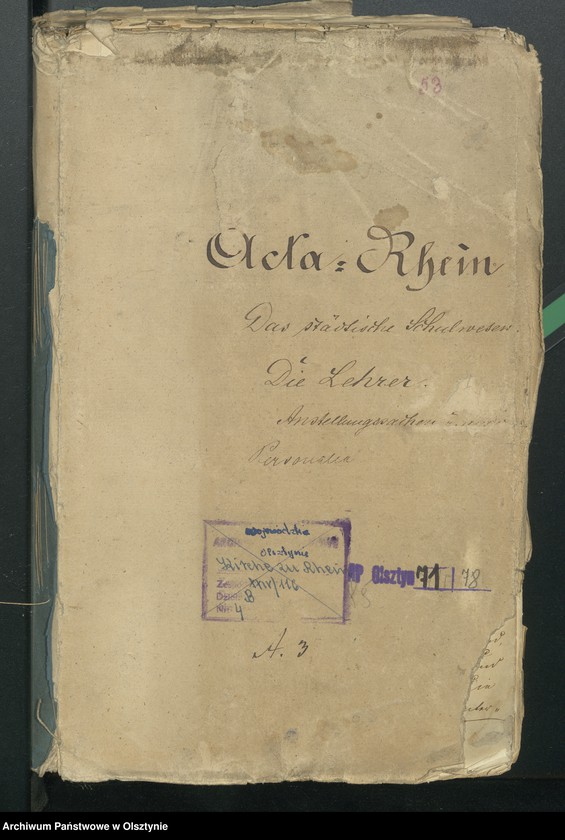 53
Acta = Rhein
Das städtische Schulwesen.
Die Lehrer.
Anstellungssachen
Personalia
wojewódzkie
Olsztynie
Kirche zu Rhein
XIV/116
B
4
AP Olsztyn 71 / 78
A. 3
Archiwum Państwowe w Olsztynie